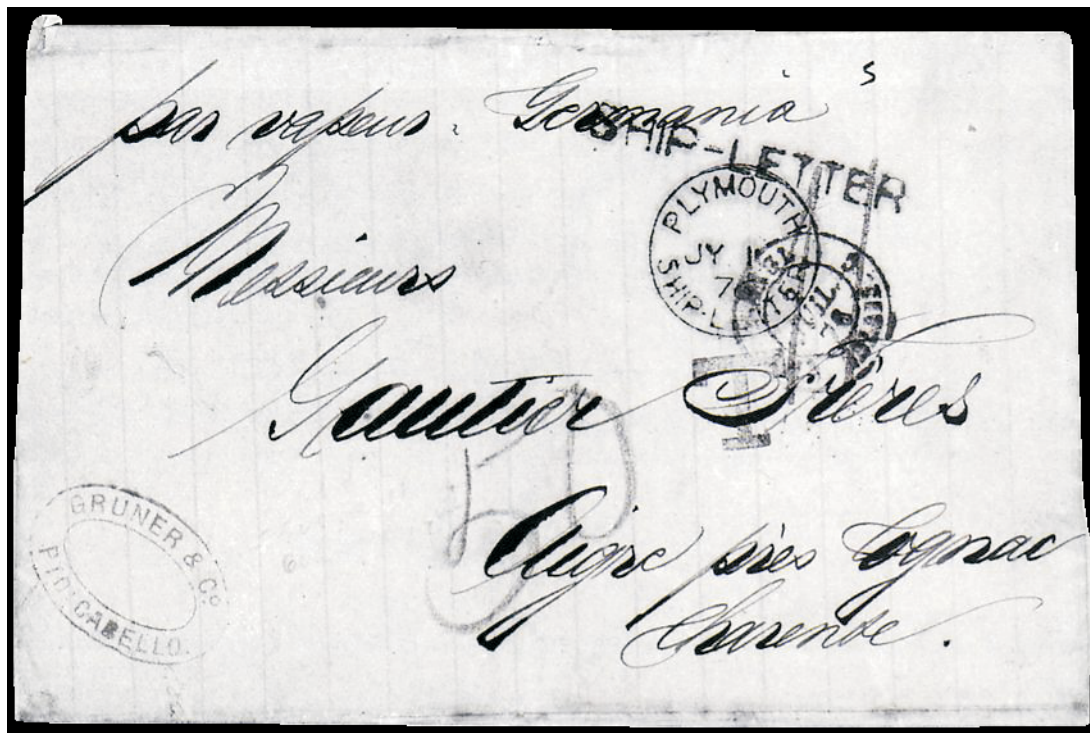 par vapeur. Germania s
SHIP-LETTER
PLYMOUTH
JY 11
7
SHIP-LETTER
Messieurs
Gautier Frères
50
Aigre près Cognac
Charente.
GRUNER & Co.
PTO. CABELLO.